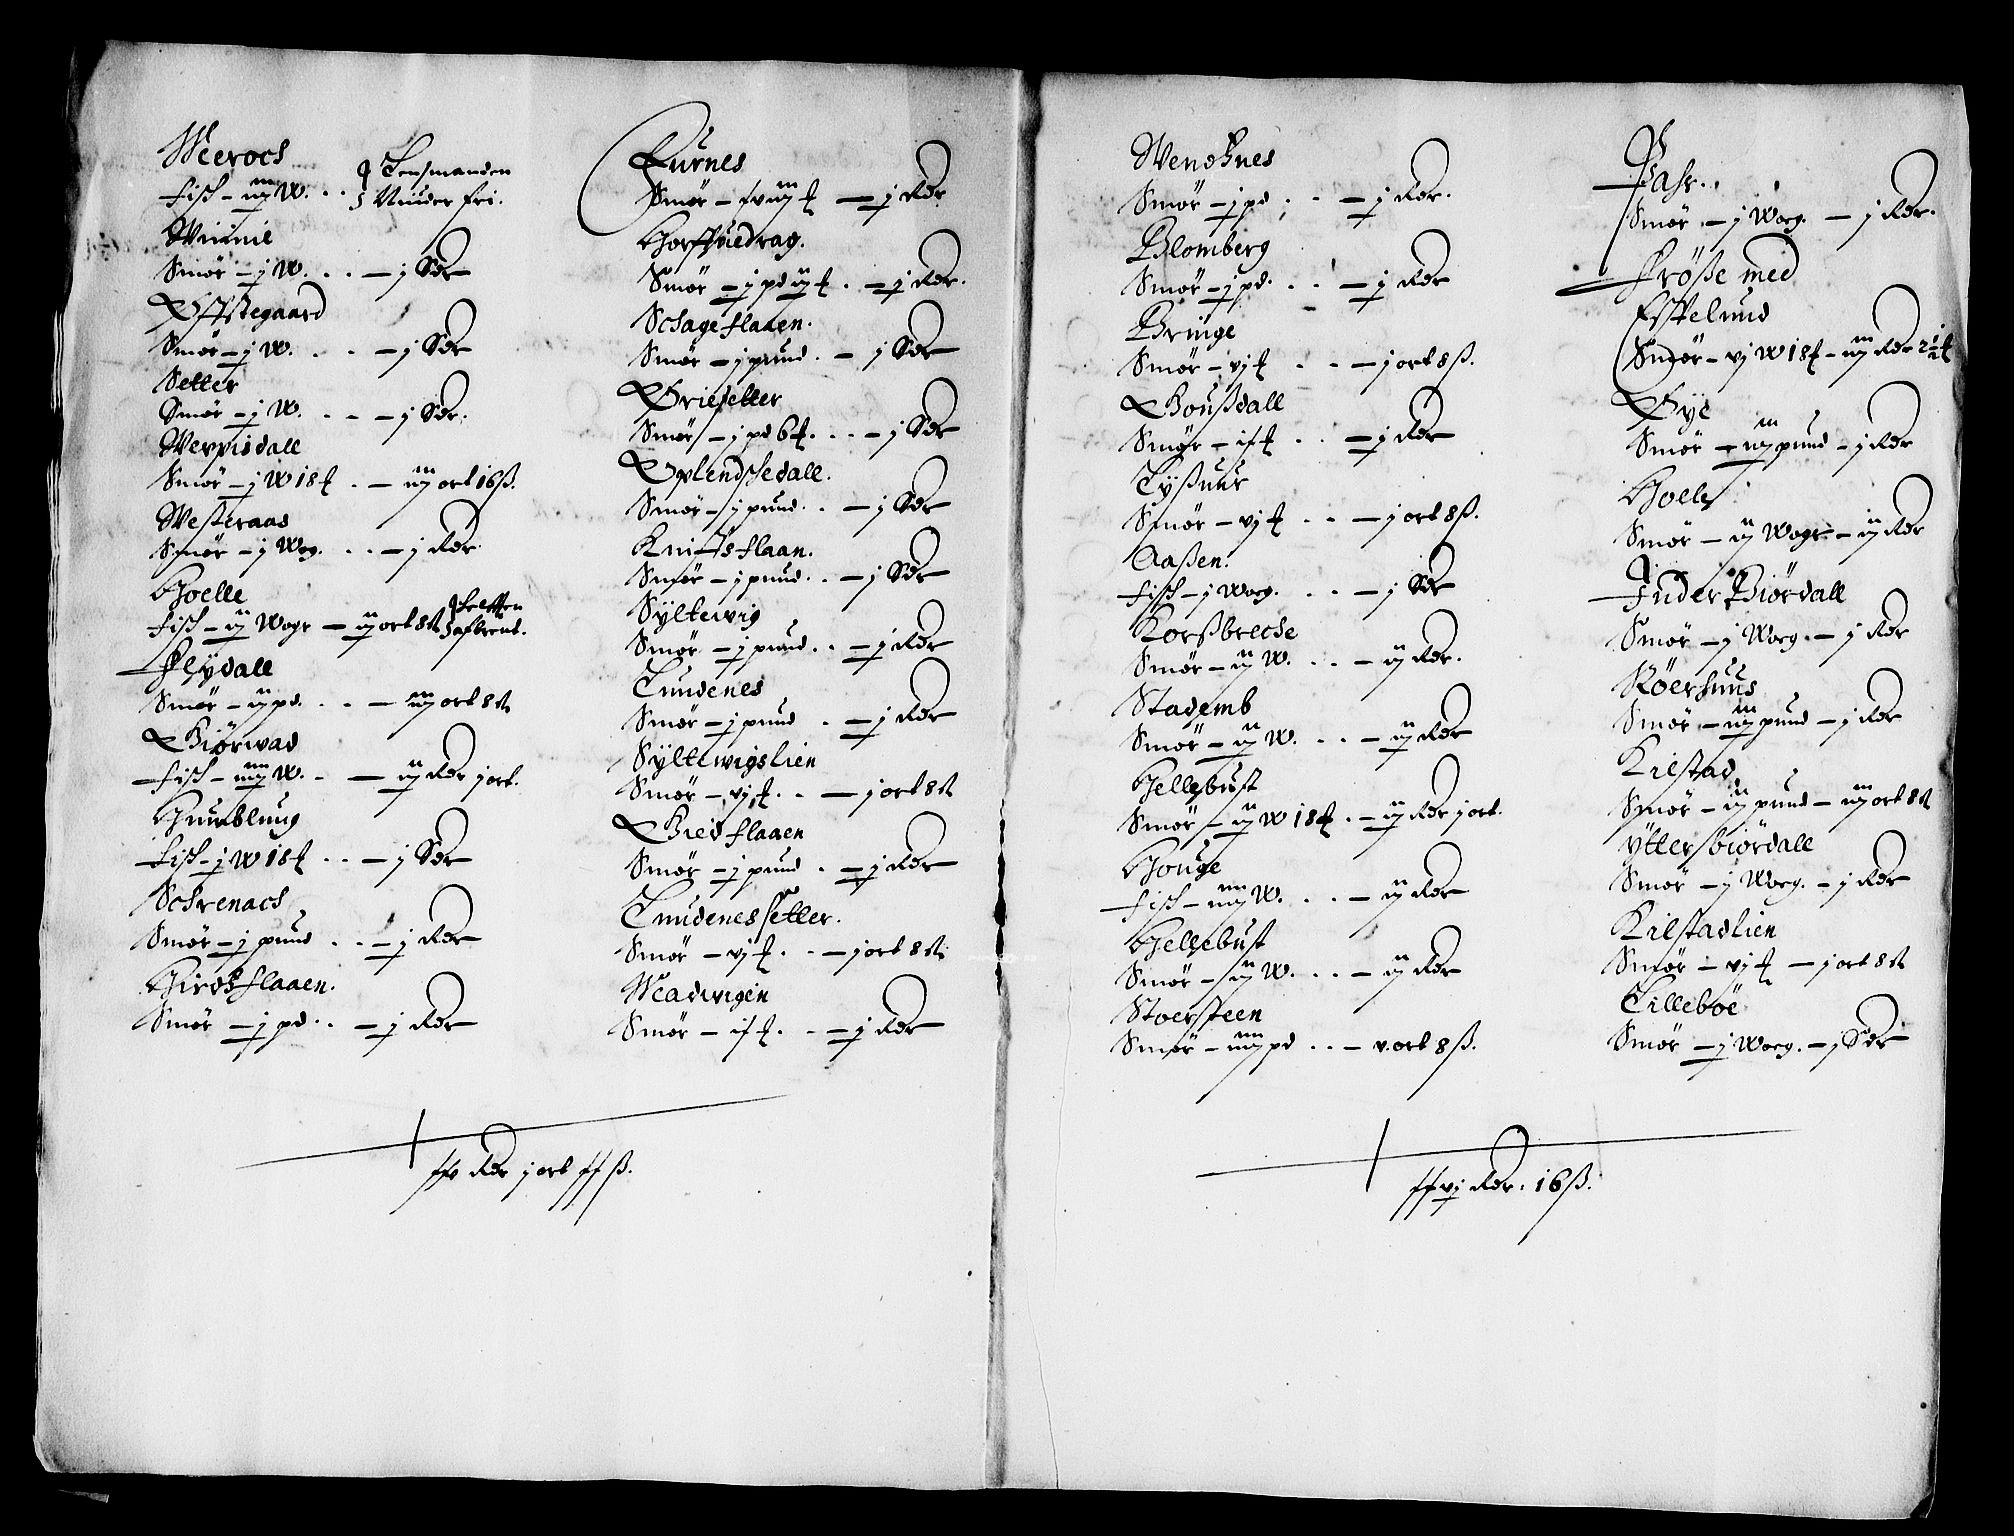 Meeroch
Fisch – iiij W. .. Lensmanden
Niuder fri.
Winnie
Smør – j W. .. – j Rdr
Offstegaard
Smør – j W. .. – j Rdr
Setter
Smør – j W. ... – j Rdr.
Werpisdall
Smør – j W 18 ℔ . – iiij ort 16 ß.
Westeraas
Smør – j Wog. .. – j Rdr.
Hoelle
Fisch – ij Wogr – iij ort 8 ß
afbrent.
Flydall
Smør – ij pd. .. – iiij ort 8 ß
Giørwad
Fisch – iiij W. . – ij Rdr j ort.
Hunblung
Fisch – j W 18 ℔ .. – j Rdr
Schrenach
Smør – j pund .. – j Rdr
Hirdsflaaen.
Smør – j pd. .. – j Rdr
Furnes
Smør – xviij ℔ – j Rdr
Horffuedrag.
Smør – j pd iij ℔ . – j Rdr.
Schageflaaen.
Smør – j pund . – j Rdr
Griesetter
Smør – j pd 6 ℔. .. – j Rdr
Oplendschedall.
Smør – j pund. .. – j Rdr
Knifsflaan.
Smør – j pund. .. – j Rdr
Syltewig
Smør – j pund .. – j Rdr
Lundenes
Smør – j pund . – j Rdr
Syltewigslien
Smør – vj ℔. . – j ort 8 ß
Breidflaaen
Smør – j pund . – j Rdr
Lundenessetter.
Smør – vj ℔ .. – j ort 8 ß.
Madwigen
Smør – ix ℔. . – j Rdr
xxv Rdr j ort xx ß.
Wendsnes
Smør – j pd . . – j Rdr.
Blomberg
Smør – j pd. .. – j Rdr
Bringe
Smør – vj ℔ .. – j ort 8 ß.
Houßdall
Smør – ix ℔ .. – j Rdr
Lyßuur
Smør – vj ℔ .. – j ort 8 ß.
Aaßen.
Fisch – j Woeg. .. – j Rdr
Korßbreche
Smør – ij W. .. – ij Rdr.
Stademb
Smør – ij W. .. – ij Rdr
Hellebust
Smør – ij W 18 ℔ . – ij Rdr j ort.
Houge
Fisch – iiij W. .. – ij Rdr
Hellebust
Smør – ij W. .. – ij Rdr
Stoersteen
Smør – iiij pd .. – v. ort 8 ß.
Fahr.
Smør – j Woeg. – j Rdr.
Frøße med
Esspelund
Smør – vj W 18 ℔ – iiij Rdr 2 1/2 ℔
Øye
Smør – iij pund – j Rdr
Hoele
Smør – ij Wogr – ij Rdr
Inder Biørdall
Smør – j Woeg. – j Rdr
Røershuus
Smør – iij pund – j Rdr
Kilstad
Smør – ij pund – iij ort 8 ß
Ytterbiørdall
Smør – j Woeg. – j Rdr
Kilstadlien
Smør – vj ℔ – j ort 8 ß
Lillebøe
Smør – j Woeg. – j Rdr
xxvj Rdr. 16 ß.